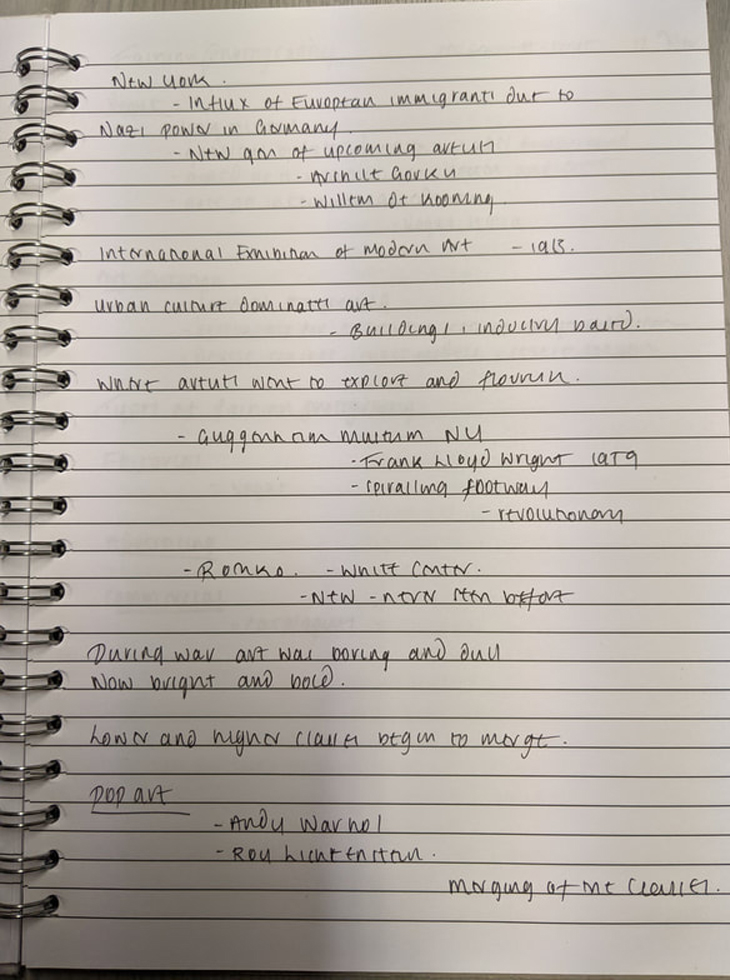 New York.
- Influx of European immigrants due to
Nazi power in Germany.
- New gen of upcoming artists
- Archile Gorky
- Willem de Kooning
International Exhibition of Modern Art - 1913.
Urban culture dominates art.
- Buildings, industry based.
Where artists went to explore and flourish.
- Guggenheim Museum NY
- Frank Lloyd Wright 1959
- spiralling footway
- revolutionary
- Rothko. - White Center.
- New - never seen before
During war art was boring and dull
Now bright and bold.
Lower and higher classes begin to merge.
Pop art
- Andy Warhol
- Roy Lichtenstein.
Merging of the classes.